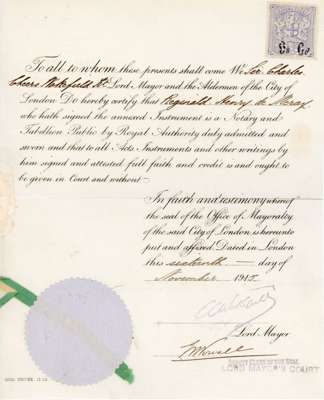 To all to whom these presents shall come We Sir Charles
Cheers Wakefield Kt. Lord Mayor and the Aldermen of the City of
London Do hereby certify that Reginald Henry de
who hath signed the annexed Instrument is a Notary and
Tabellion Public by Royal Authority duly admitted and
sworn and that to all Acts Instruments and other writings by
him signed and attested full faith and credit is and ought to
be given in Court and without
In faith and testimony whereof
the seal of the Office of Mayoralty
of the said City of London is hereunto
put and affixed. Dated in London
this sixteenth day of
November 1915.
Lord Mayor
LORD MAYOR'S COURT